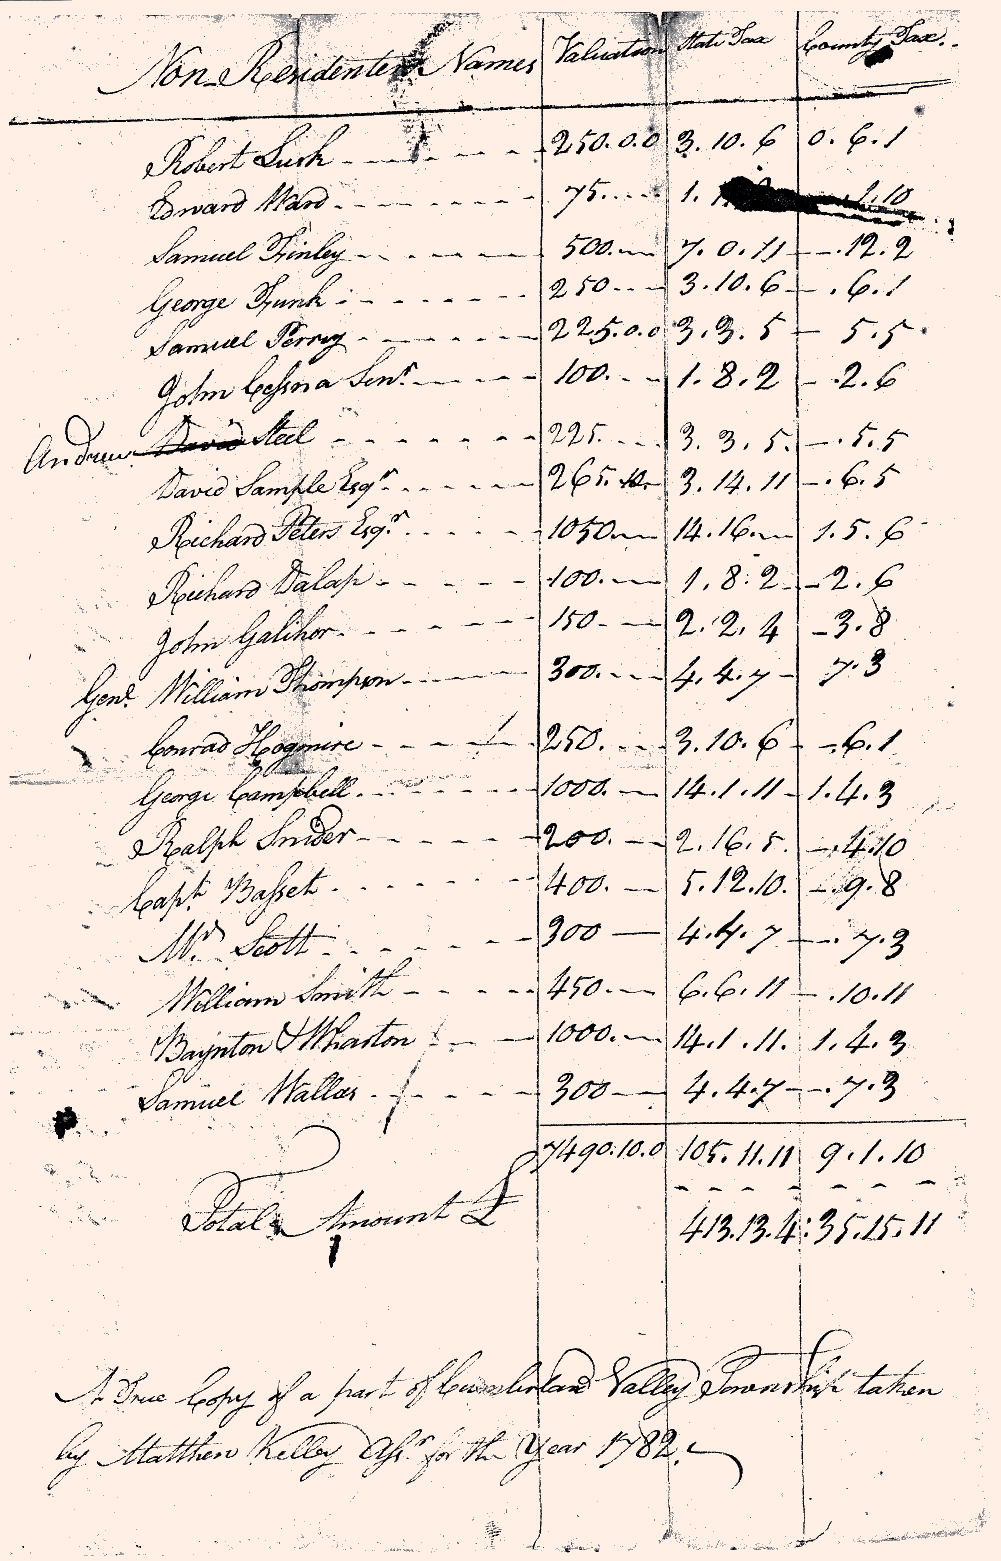 Non Residenters Names Valuation State Tax County Tax
Robert Lusk 250.0.0 3.10.6 0.6.1
Edward Ward 75 1. 1.10
Samuel Finley 500 7.0.11 12.2
George Funk 250 3.10.6 .6.1
Samuel Perry 225.0.0 3.3.5 5.5
John Cessna Senr. 100 1.8.2 .2.6
Andrew David Steel 225 3.3.5. .5.5
David Sample Esqr. 265.10 3.14.11 .6.5
Richard Peters Esqr. 1050 14.16. 1.5.6
Richard Dalap 100 1.8.2 2.6
John Galihor 150 2.2.4 3.8
Genl. William Thompson 300 4.4.7 7.3
Conrad Hogmire 250 3.10.6 .6.1
George Campbell 1000 14.1.11 1.4.3
Ralph Snider 200 2.16.5. .4.10
Capt. Basset 400 5.12.10. .9.8
Mr. Scott 300 4.4.7 .7.3
William Smith 450 6.6.11 .10.11
Baynton & Wharton 1000 14.1.11. 1.4.3
Samuel Wallas 300 4.4.7 .7.3
7490.10.0 105.11.11 9.1.10
Total Amount £ 413.13.4: 35.15.11
A True Copy of a part of Cumberland Valley Township taken
by Matthew Kelley Assr. for the Year 1782.